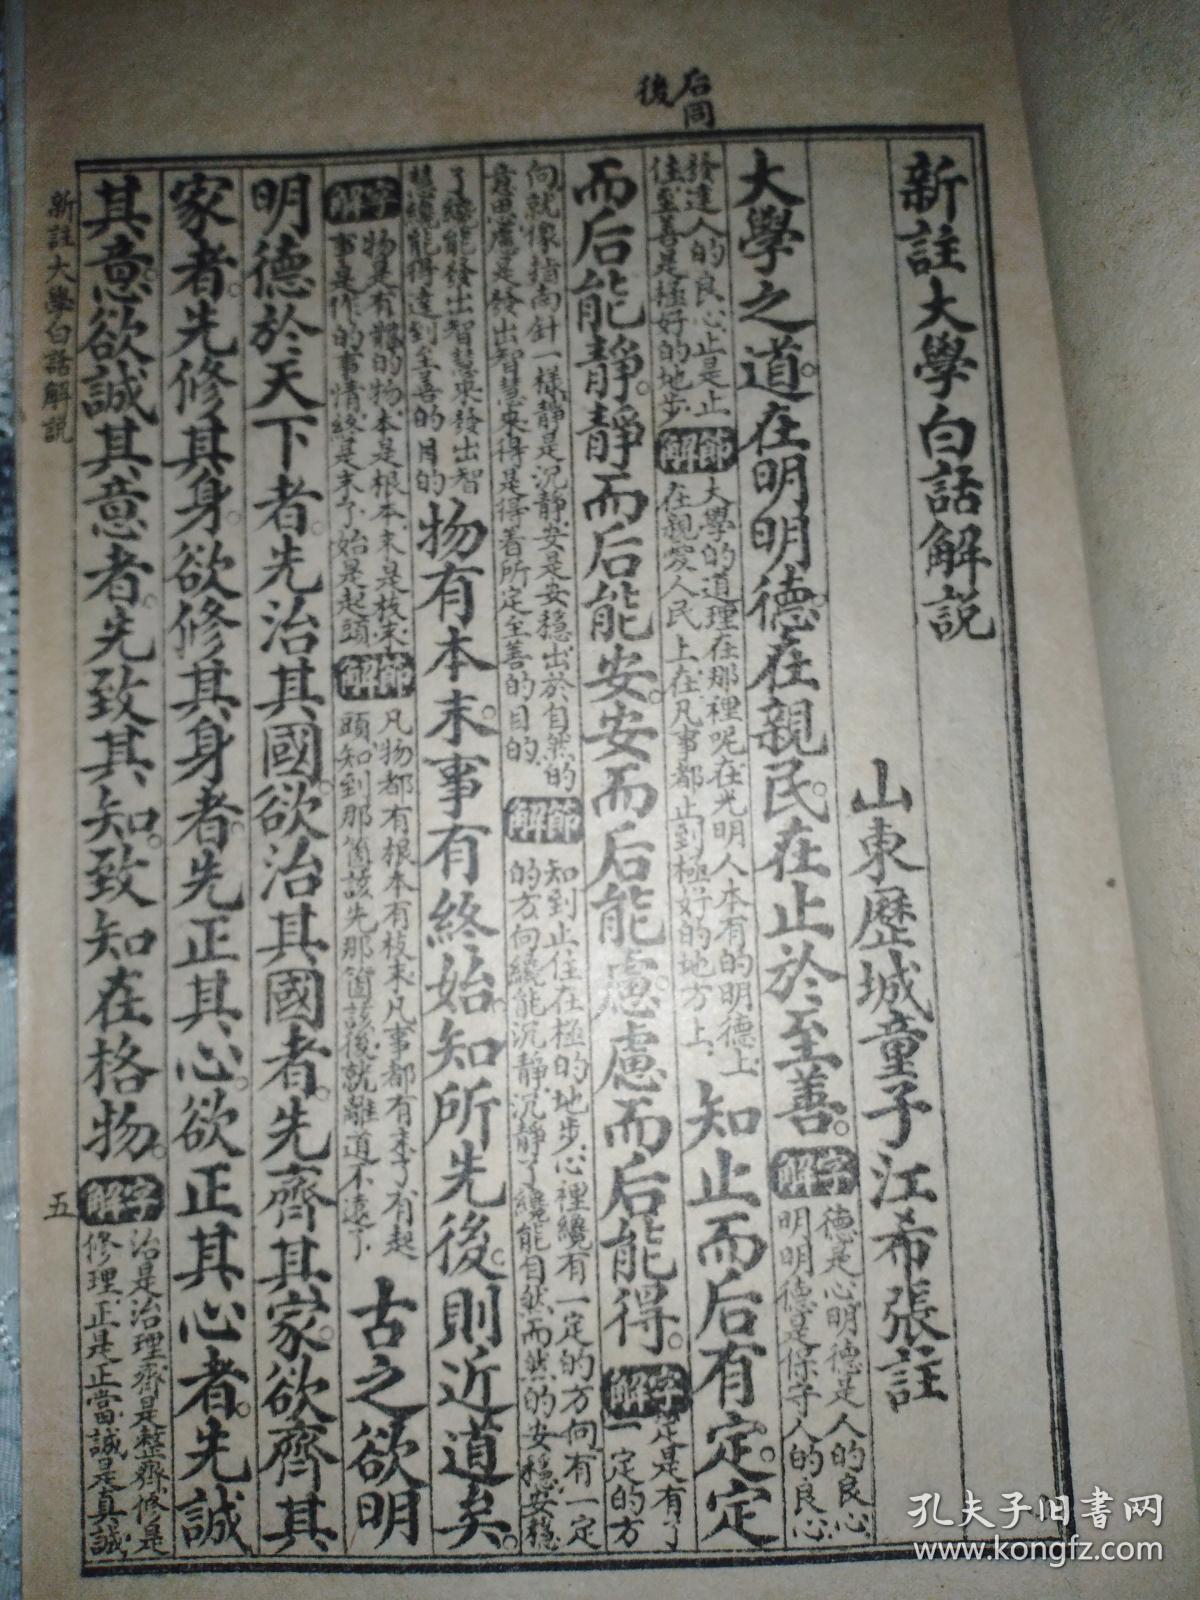 后同
後
新註大學白話解説
山東歷城童子江希張註
大學之道。在明明德。在親民。在止於至善。字解 德是心明德是人的良心明明德是保守人的良心
發達人的良心止是止住至善是極好的地步 節解 大學的道理在那裡呢在光明人本有的明德上在親愛人民上在凡事都止到極好的地方上 知止而后有定。定
而后能靜。靜而后能安。安而后能慮。慮而后能得。字解 定是有了一定的方
向就像指南針一樣靜是沉靜安是安穩出於自然的意思慮是發出智慧來得是得着所定至善的目的 節解 知到止住在極的地步心裡纔有一定的方向有一定的方向纔能沉靜沉靜了纔能自然而然的安穩安穩
了纔能發出智慧來發出智慧纔能得達到至善的目的 物有本末。事有終始。知所先後。則近道矣。
字解 物是有體的物本是根本末是枝末事是作的事情終是末了始是起頭 節解 凡物都有根本有枝末凡事都有末了有起頭知到那箇該先那箇該後就離道不遠了 古之欲明
明德於天下者。先治其國。欲治其國者。先齊其家。欲齊其
家者。先修其身。欲修其身者。先正其心。欲正其心者。先誠
其意。欲誠其意者。先致其知。致知在格物。字解 治是治理齊是整齊修是修理正是正當誠是真誠
新註大學白話解説
五
孔夫子旧書网
www.kongfz.com